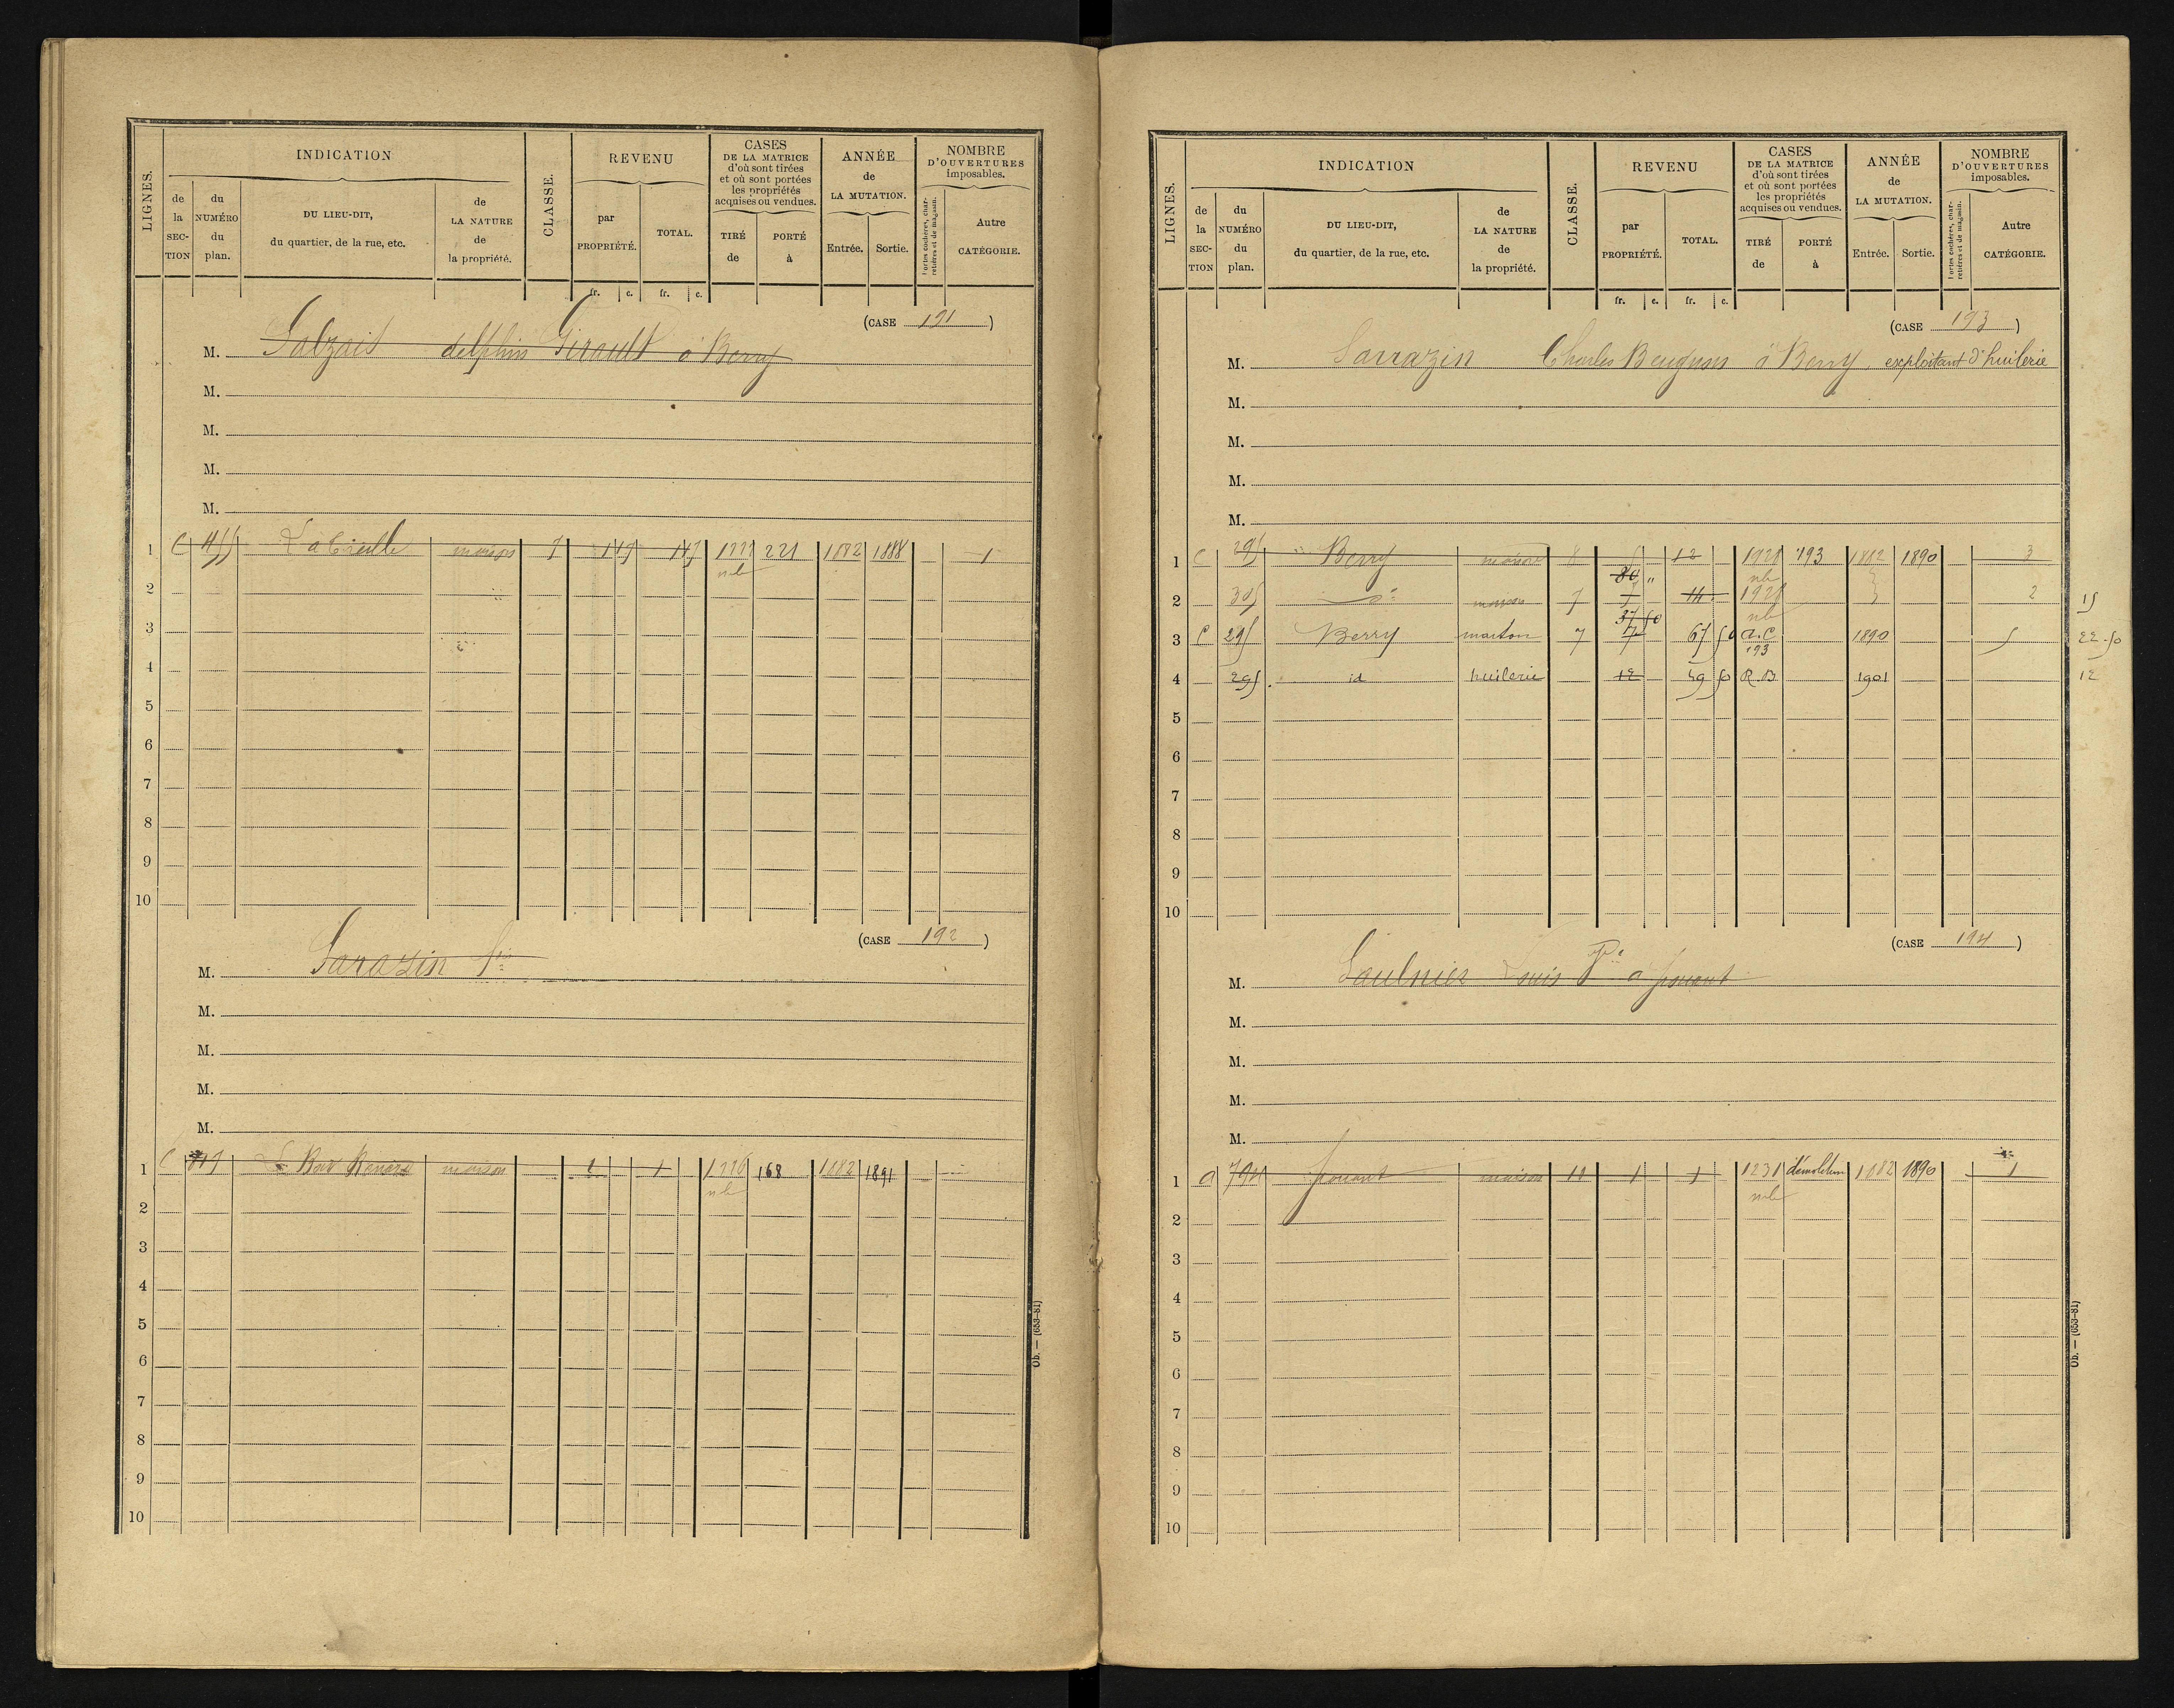 LIGNES.
INDICATION
de la SECTION
du NUMÉRO du plan.
DU LIEU-DIT, du quartier, de la rue, etc.
de LA NATURE de la propriété.
CLASSE.
REVENU
par PROPRIÉTÉ.
TOTAL.
CASES DE LA MATRICE d'où sont tirées et où sont portées les propriétés acquises ou vendues.
TIRÉ de
PORTÉ à
ANNÉE de LA MUTATION.
Entrée.
Sortie.
NOMBRE D'OUVERTURES imposables.
Portes cochères, charretières et de magasin.
Autre CATÉGORIE.
fr. c. fr. c.
(CASE 191)
M. Salzait delphin Girault à Berry
M.
M.
M.
M.
1 C maison 7 221 1882 1888 1
nb
2
3
4
5
6
7
8
9
10
(CASE 192)
M. Sarazin
M.
M.
M.
M.
1 C maison 1 1226 168 1882 1891
nb
2
3
4
5
6
7
8
9
10
Ob. — (653-81)
LIGNES.
INDICATION
de la SECTION
du NUMÉRO du plan.
DU LIEU-DIT, du quartier, de la rue, etc.
de LA NATURE de la propriété.
CLASSE.
REVENU
par PROPRIÉTÉ.
TOTAL.
CASES DE LA MATRICE d'où sont tirées et où sont portées les propriétés acquises ou vendues.
TIRÉ de
PORTÉ à
ANNÉE de LA MUTATION.
Entrée.
Sortie.
NOMBRE D'OUVERTURES imposables.
Portes cochères, charretières et de magasin.
Autre CATÉGORIE.
fr. c. fr. c.
(CASE 193)
M. Sarrazin Charles à Berry, exploitant d'huilerie
M.
M.
M.
M.
1 C 295 Berry maison 8 12 193 1882 1890 3
30 " nb
2 305 d° maison 7 7 14 2 15
37 50 nb
3 C 295 Berry maison 7 7 67 50 a.c 193 1890 5 22.50
4 295 id huilerie 12 59 50 R.B 1901 12
5
6
7
8
9
10
(CASE 194)
M. Saulnier Louis à Jouant
M.
M.
M.
M.
1 a 794 Jouant maison 11 1 1 1231 démolition 1882 1890 1
nb
2
3
4
5
6
7
8
9
10
Ob. — (653-81)